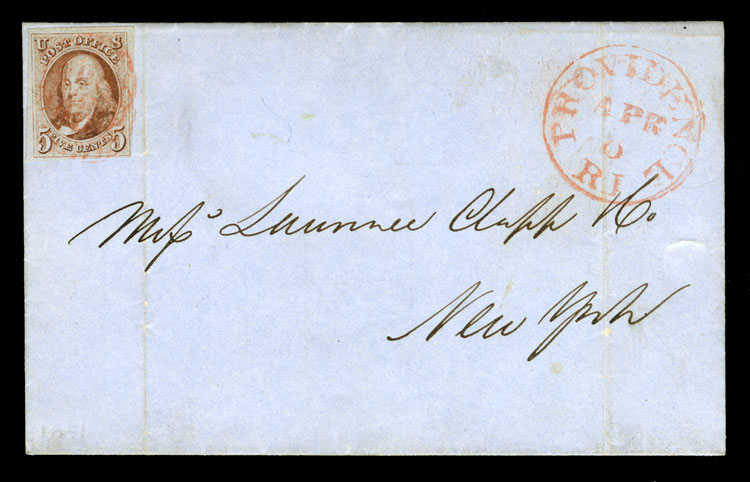 U S
POST OFFICE
5 FIVE CENTS 5
PROVIDENCE
APR
R.I.
Messrs Lawrence Clapp & Co.
New York